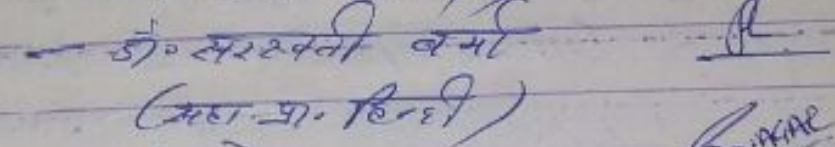 - डॉ॰ सरस्वती वर्मा
(सहा. प्रा. हिन्दी)